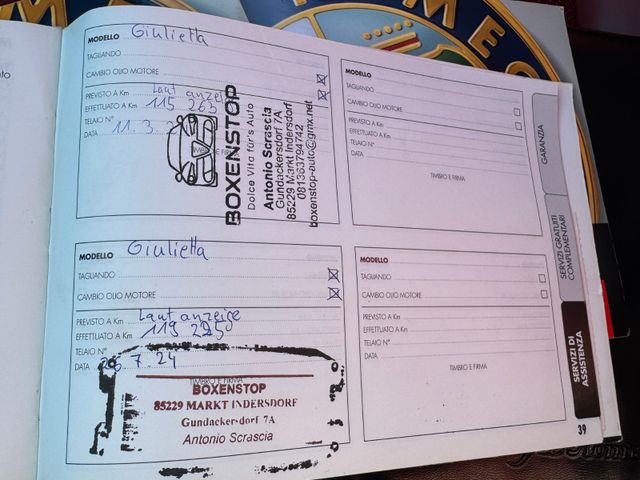 MODELLO Giulietta
TAGLIANDO
CAMBIO OLIO MOTORE
PREVISTO A Km Laut anzeige
EFFETTUATO A Km 115 263
TELAIO N°
DATA 11.3.
BOXENSTOP
Dolce Vita für's Auto
Antonio Scrascia
Gundackersdorf 7A
85229 Markt Indersdorf
081363794742
boxenstop-auto@gmx.net
MODELLO
TAGLIANDO
CAMBIO OLIO MOTORE
PREVISTO A Km
EFFETTUATO A Km
TELAIO N°
DATA
TIMBRO E FIRMA
MODELLO Giulietta
TAGLIANDO
CAMBIO OLIO MOTORE
PREVISTO A Km Laut anzeige
EFFETTUATO A Km 119 225
TELAIO N°
DATA 7.24
TIMBRO E FIRMA
BOXENSTOP
85229 MARKT INDERSDORF
Gundackersdorf 7A
Antonio Scrascia
MODELLO
TAGLIANDO
CAMBIO OLIO MOTORE
PREVISTO A Km
EFFETTUATO A Km
TELAIO N°
DATA
TIMBRO E FIRMA
GARANZIA
SERVIZI GRATUITI
COMPLEMENTARI
SERVIZI DI
ASSISTENZA
39